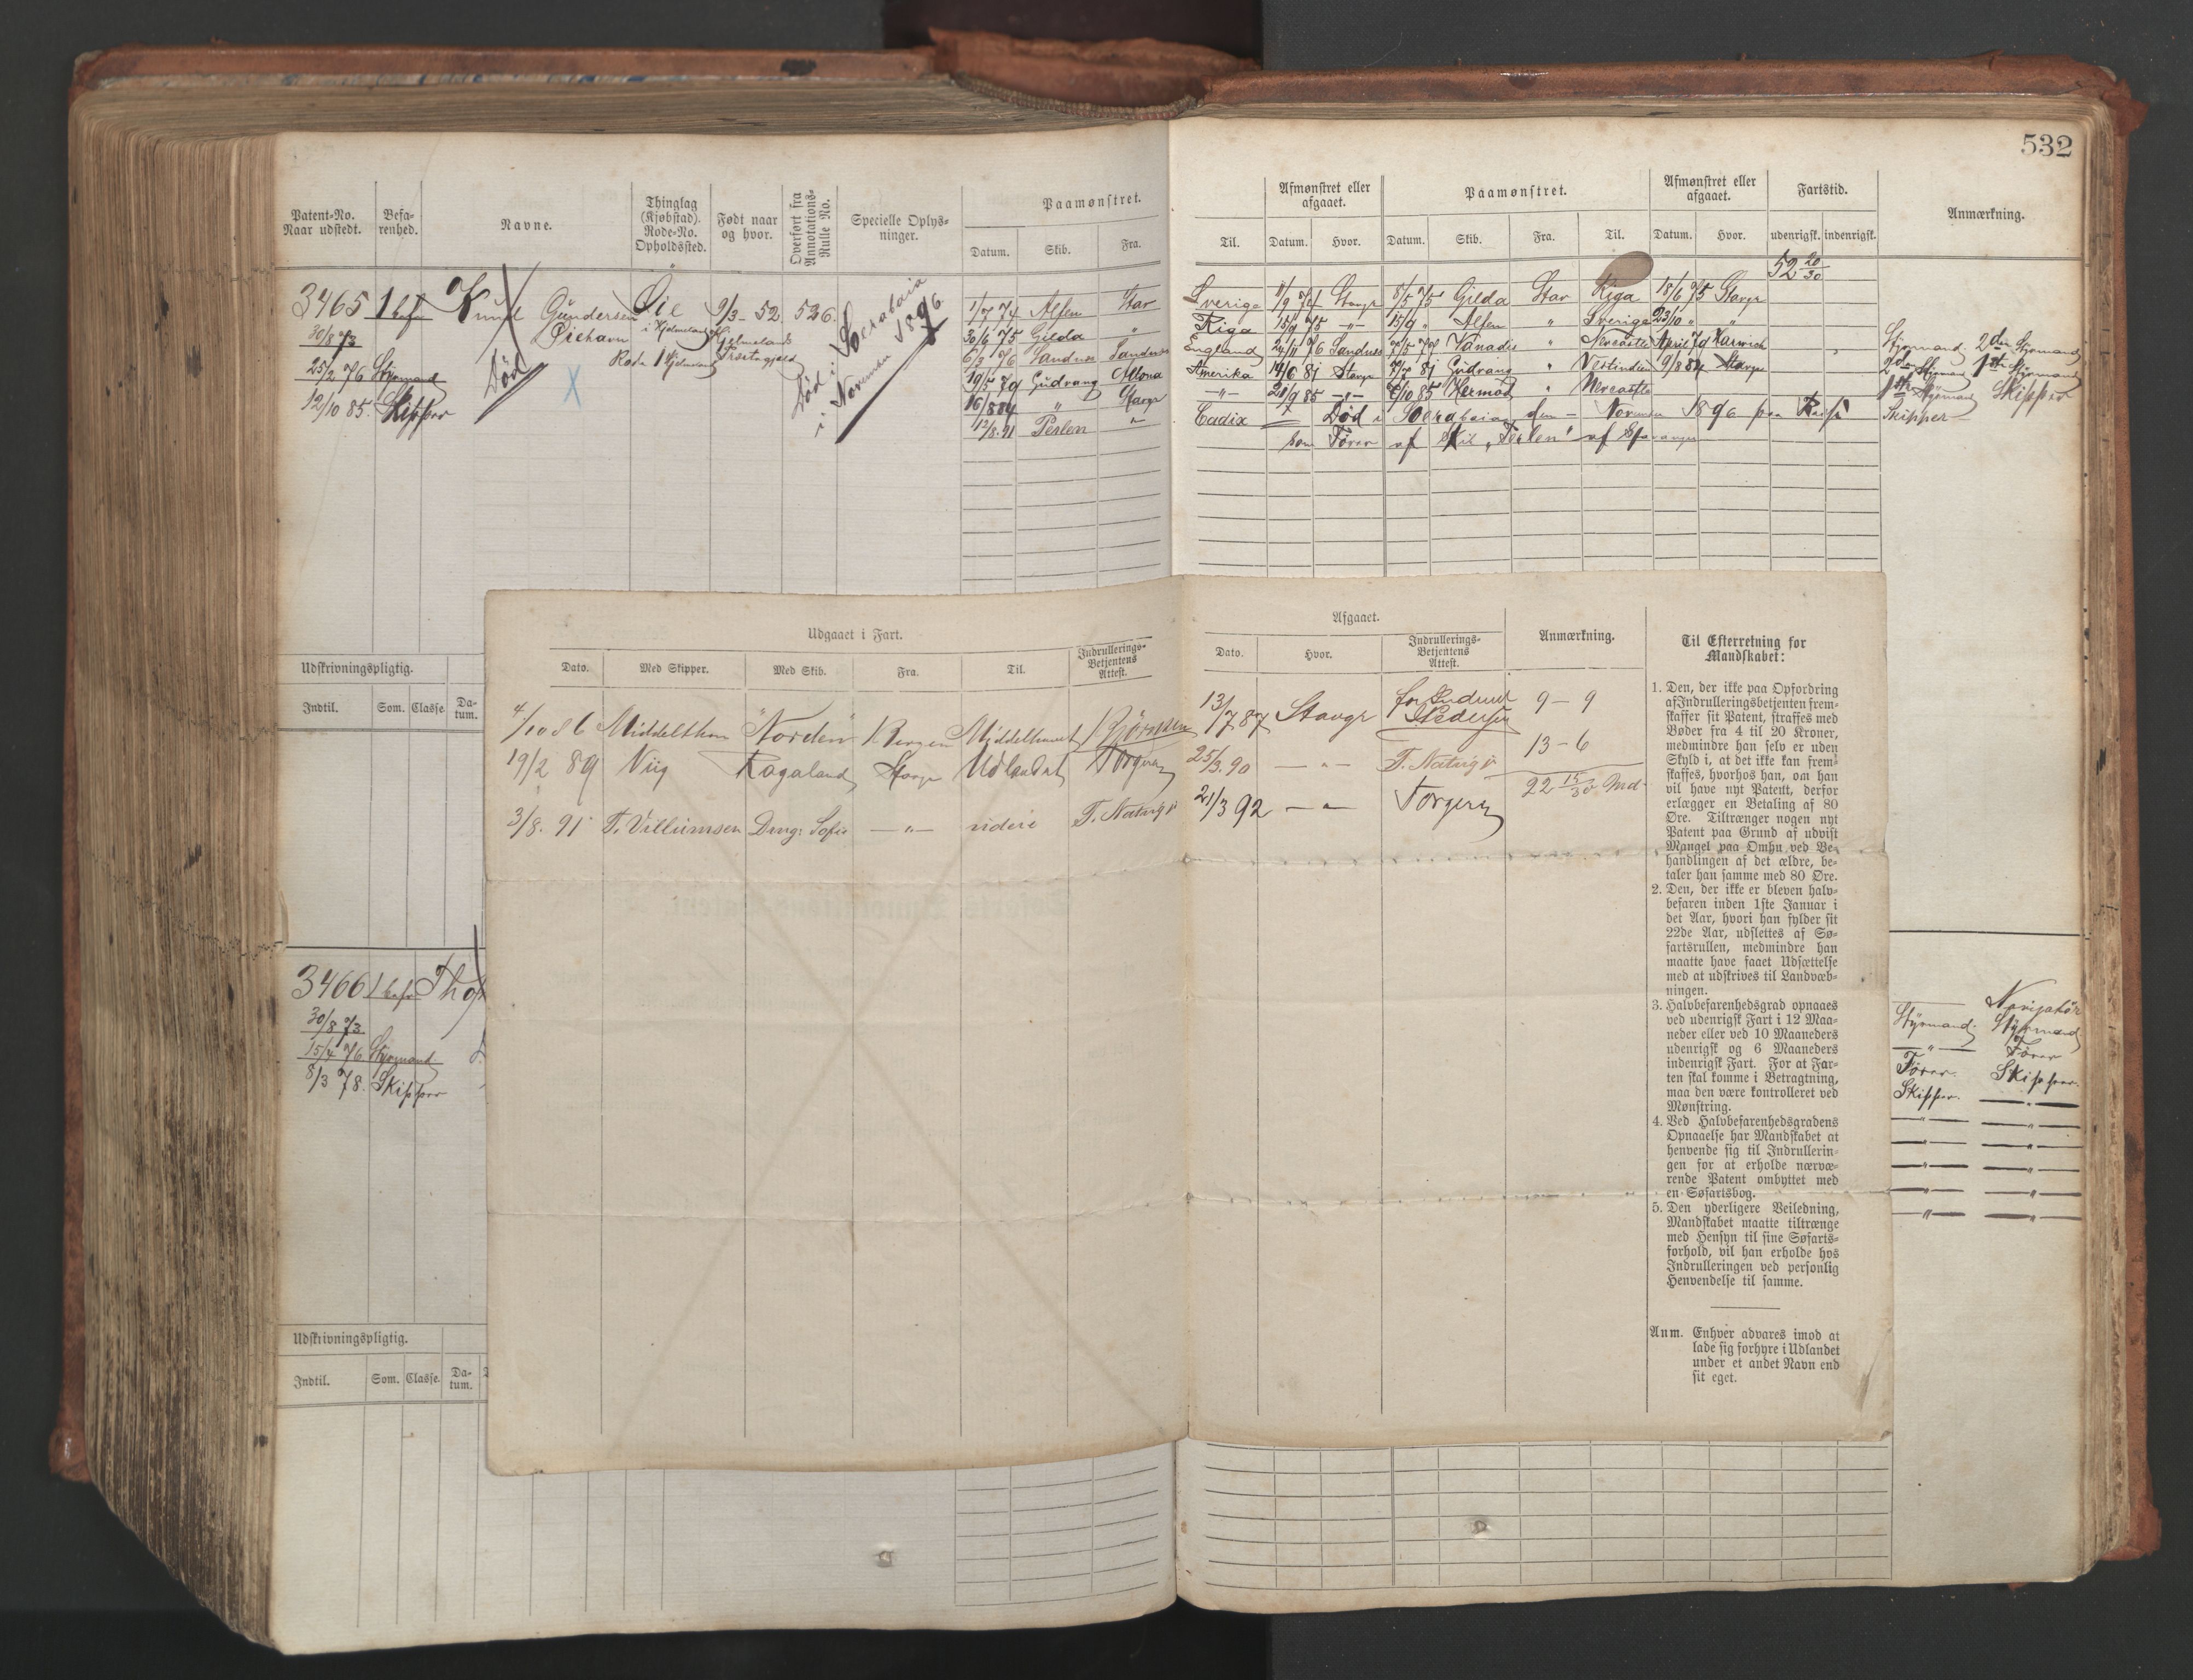 532
Patent-No. Naar udstedt.
Befarenhed.
Navne.
Thinglag (Kjøbstad). Rode-No. Opholdssted.
Født naar og hvor.
Overført fra Annotations-Rulle No.
Specielle Oplysninger.
Paamønstret.
Datum. Skib. Fra.
Til.
Afmønstret eller afgaaet.
Datum. Hvor.
Paamønstret.
Datum. Skib. Fra. Til.
Afmønstret eller afgaaet.
Datum. Hvor.
Fartstid.
udenrigsk. indenrigsk.
Anmærkning.
52 20/30
3465 1 bef Knud Gundersen Øie 9/3 - 52. 536.
30/8 73 Øiehavn i Hjelmeland Hjelmelands Præstegjeld
25/2 76 Styrmand Rode 1 Hjelmeland
12/10 85. Skipper
Død
Død i Soerabaia
i November 1896
1/7 74 Alfen Star
30/6 75 Gilda "
Sandnes Sandnes
Gudrang Altona
16/8 84 " Stavgr
12/8. 91 Perlen "
Sverige Stavgr 8/5 75 Gilda Stav Riga 18/6 75 Stavgr
Riga 15/9 75 -"- 15/9 " Alfen " Sverige 23/10 " "
England 24/11 76 Sandnes Vanadis " Newcastle April 79 Harwich Styrmand. 2den Styrmand
Amerika 14/6 81 Stavgr Gudrang " Vestindien 9/8 84 Stavgr 2den Styrmand 1ste Styrmand
-"- 21/9 85 -"- 6/10 85 Hermod " Newcastle 1ste Styrmand Skipper
Cadix Død i Soerabaia den - November 1896 paa Reise Skipper
som Fører af Skib "Perlen" af Stavanger
Udskrivningspligtig.
Indtil. Som. Classe. Datum.
Udgaaet i Fart.
Dato. Med Skipper. Med Skib. Fra. Til. Indrullerings-Betjentens Attest.
Afgaaet.
Dato. Hvor. Indrullerings-Betjentens Attest.
Anmærkning.
4/10 86 Middelthon "Norden" Bergen Middelhavet 13/7 87 Stavgr Pedersen 9 - 9
19/2 89 Niig Rogaland Stavgr Udlandet Torgersen 25/3. 90 - " - 13 - 6
22 15/30 Md.
3/8. 91 T. Villumsen Dmg: Sofie - " - videre 21/3 92 - " - Torgersen
Til Efterretning for
Mandskabet:
1. Den, der ikke paa Opfordring
af Indrulleringsbetjenten frem-
skaffer sit Patent, straffes med
Bøder fra 4 til 20 Kroner,
medmindre han selv er uden
Skyld i, at det ikke kan frem-
skaffes, hvorhos han, om han
vil have nyt Patent, derfor
erlægger en Betaling af 80
Øre. Tiltrænger nogen nyt
Patent paa Grund af udvist
Mangel paa Omhu ved Be-
handlingen af det ældre, be-
taler han samme med 80 Øre.
2. Den, der ikke er bleven halv-
befaren inden 1ste Januar i
det Aar, hvori han fylder sit
22de Aar, udslettes af Sø-
fartsrullen, medmindre han
maatte have faaet Udsættelse
med at udskrives til Landvæb-
ningen.
3. Halvbefarenhedsgrad opnaaes
ved udenrigsk Fart i 12 Maa-
neder eller ved 10 Maaneders
udenrigsk og 6 Maaneders
indenrigsk Fart. For at Far-
ten skal komme i Betragtning,
maa den være kontrolleret ved
Mønstring.
4. Ved Halvbefarenhedsgradens
Opnaaelse har Mandskabet at
henvende sig til Indrullerin-
gen for at erholde nærvæ-
rende Patent ombyttet med
en Søfartsbog.
5. Den yderligere Veiledning,
Mandskabet maatte tiltrænge
med Hensyn til sine Søfarts-
forhold, vil han erholde hos
Indrulleringen ved personlig
Henvendelse til samme.
Anm. Enhver advares imod at
lade sig forhyre i Udlandet
under et andet Navn end
sit eget.
3466 1 bef.
30/8 73
15/4 76 Styrmand
8/3 78. Skipper
Navigatør
Styrmand. Styrmand
-"- Fører
Fører. Skipper.
Skipper. -"-
-"- -"-
-"- -"-
-"- -"-
-"- -"-
-"- -"-
Udskrivningspligtig.
Indtil. Som. Classe. Datum.